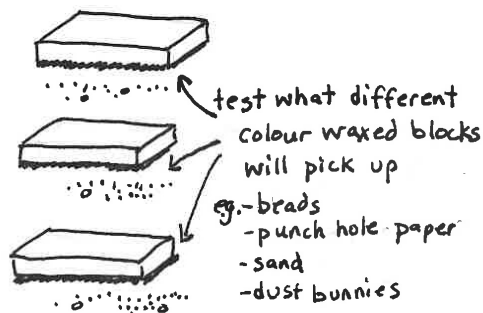 test what different
colour waxed blocks
will pick up
eg. - beads
- punch hole paper
- sand
- dust bunnies